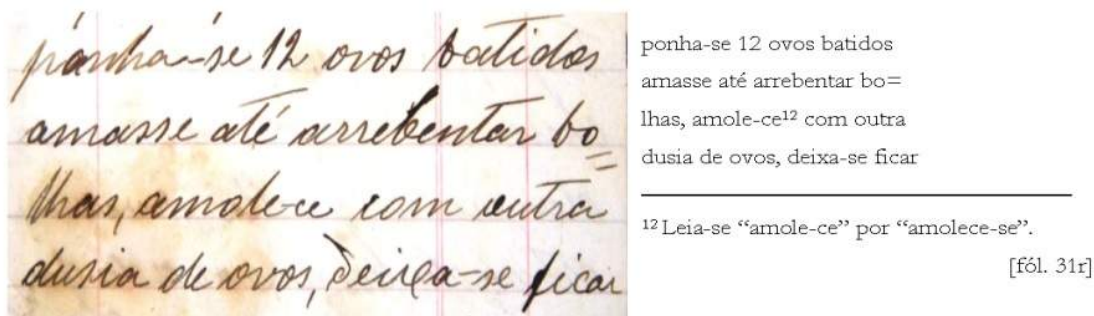 ponha-se 12 ovos batidos
amasse até arrebentar bo=
lhas, amole-ce com outra
dusia de ovos, deixa-se ficar
ponha-se 12 ovos batidos
amasse até arrebentar bo=
lhas, amole-ce¹² com outra
dusia de ovos, deixa-se ficar
¹² Leia-se “amole-ce” por “amolece-se”.
[fól. 31r]